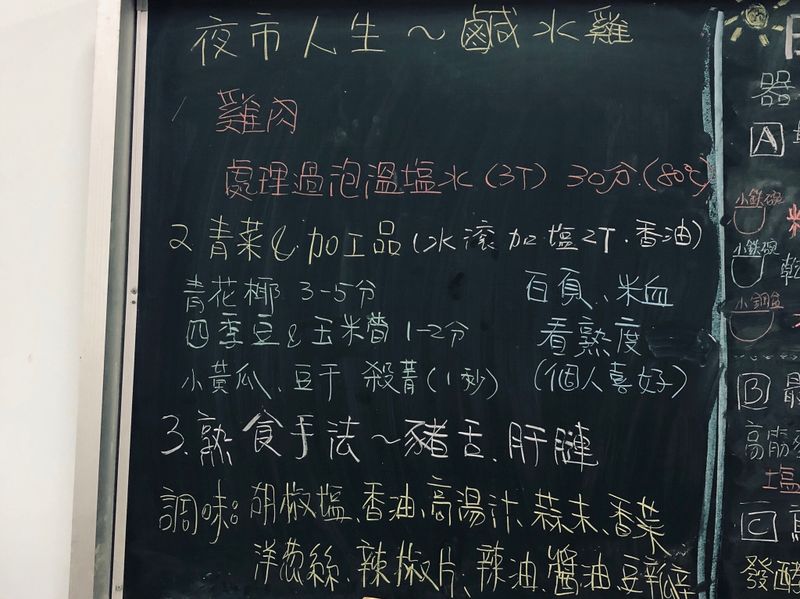 夜市人生～鹹水雞
1 雞肉
處理過泡溫塩水(3T) 30分.(80℃)
2 青菜&加工品(水滾加塩2T.香油)
青花椰 3-5分 百頁、米血
四季豆&玉米筍 1-2分 看熟度
小黃瓜、豆干 殺菁(1秒) (個人喜好)
3.熟食手法～豬舌、肝腱
調味:胡椒塩、香油、高湯汁、蒜末、香菜
洋葱絲、辣椒片、辣油、醬油、豆瓣
器
A
小鉄碗
小鉄碗
小鋼盆
B
高筋
塩
C
發酵